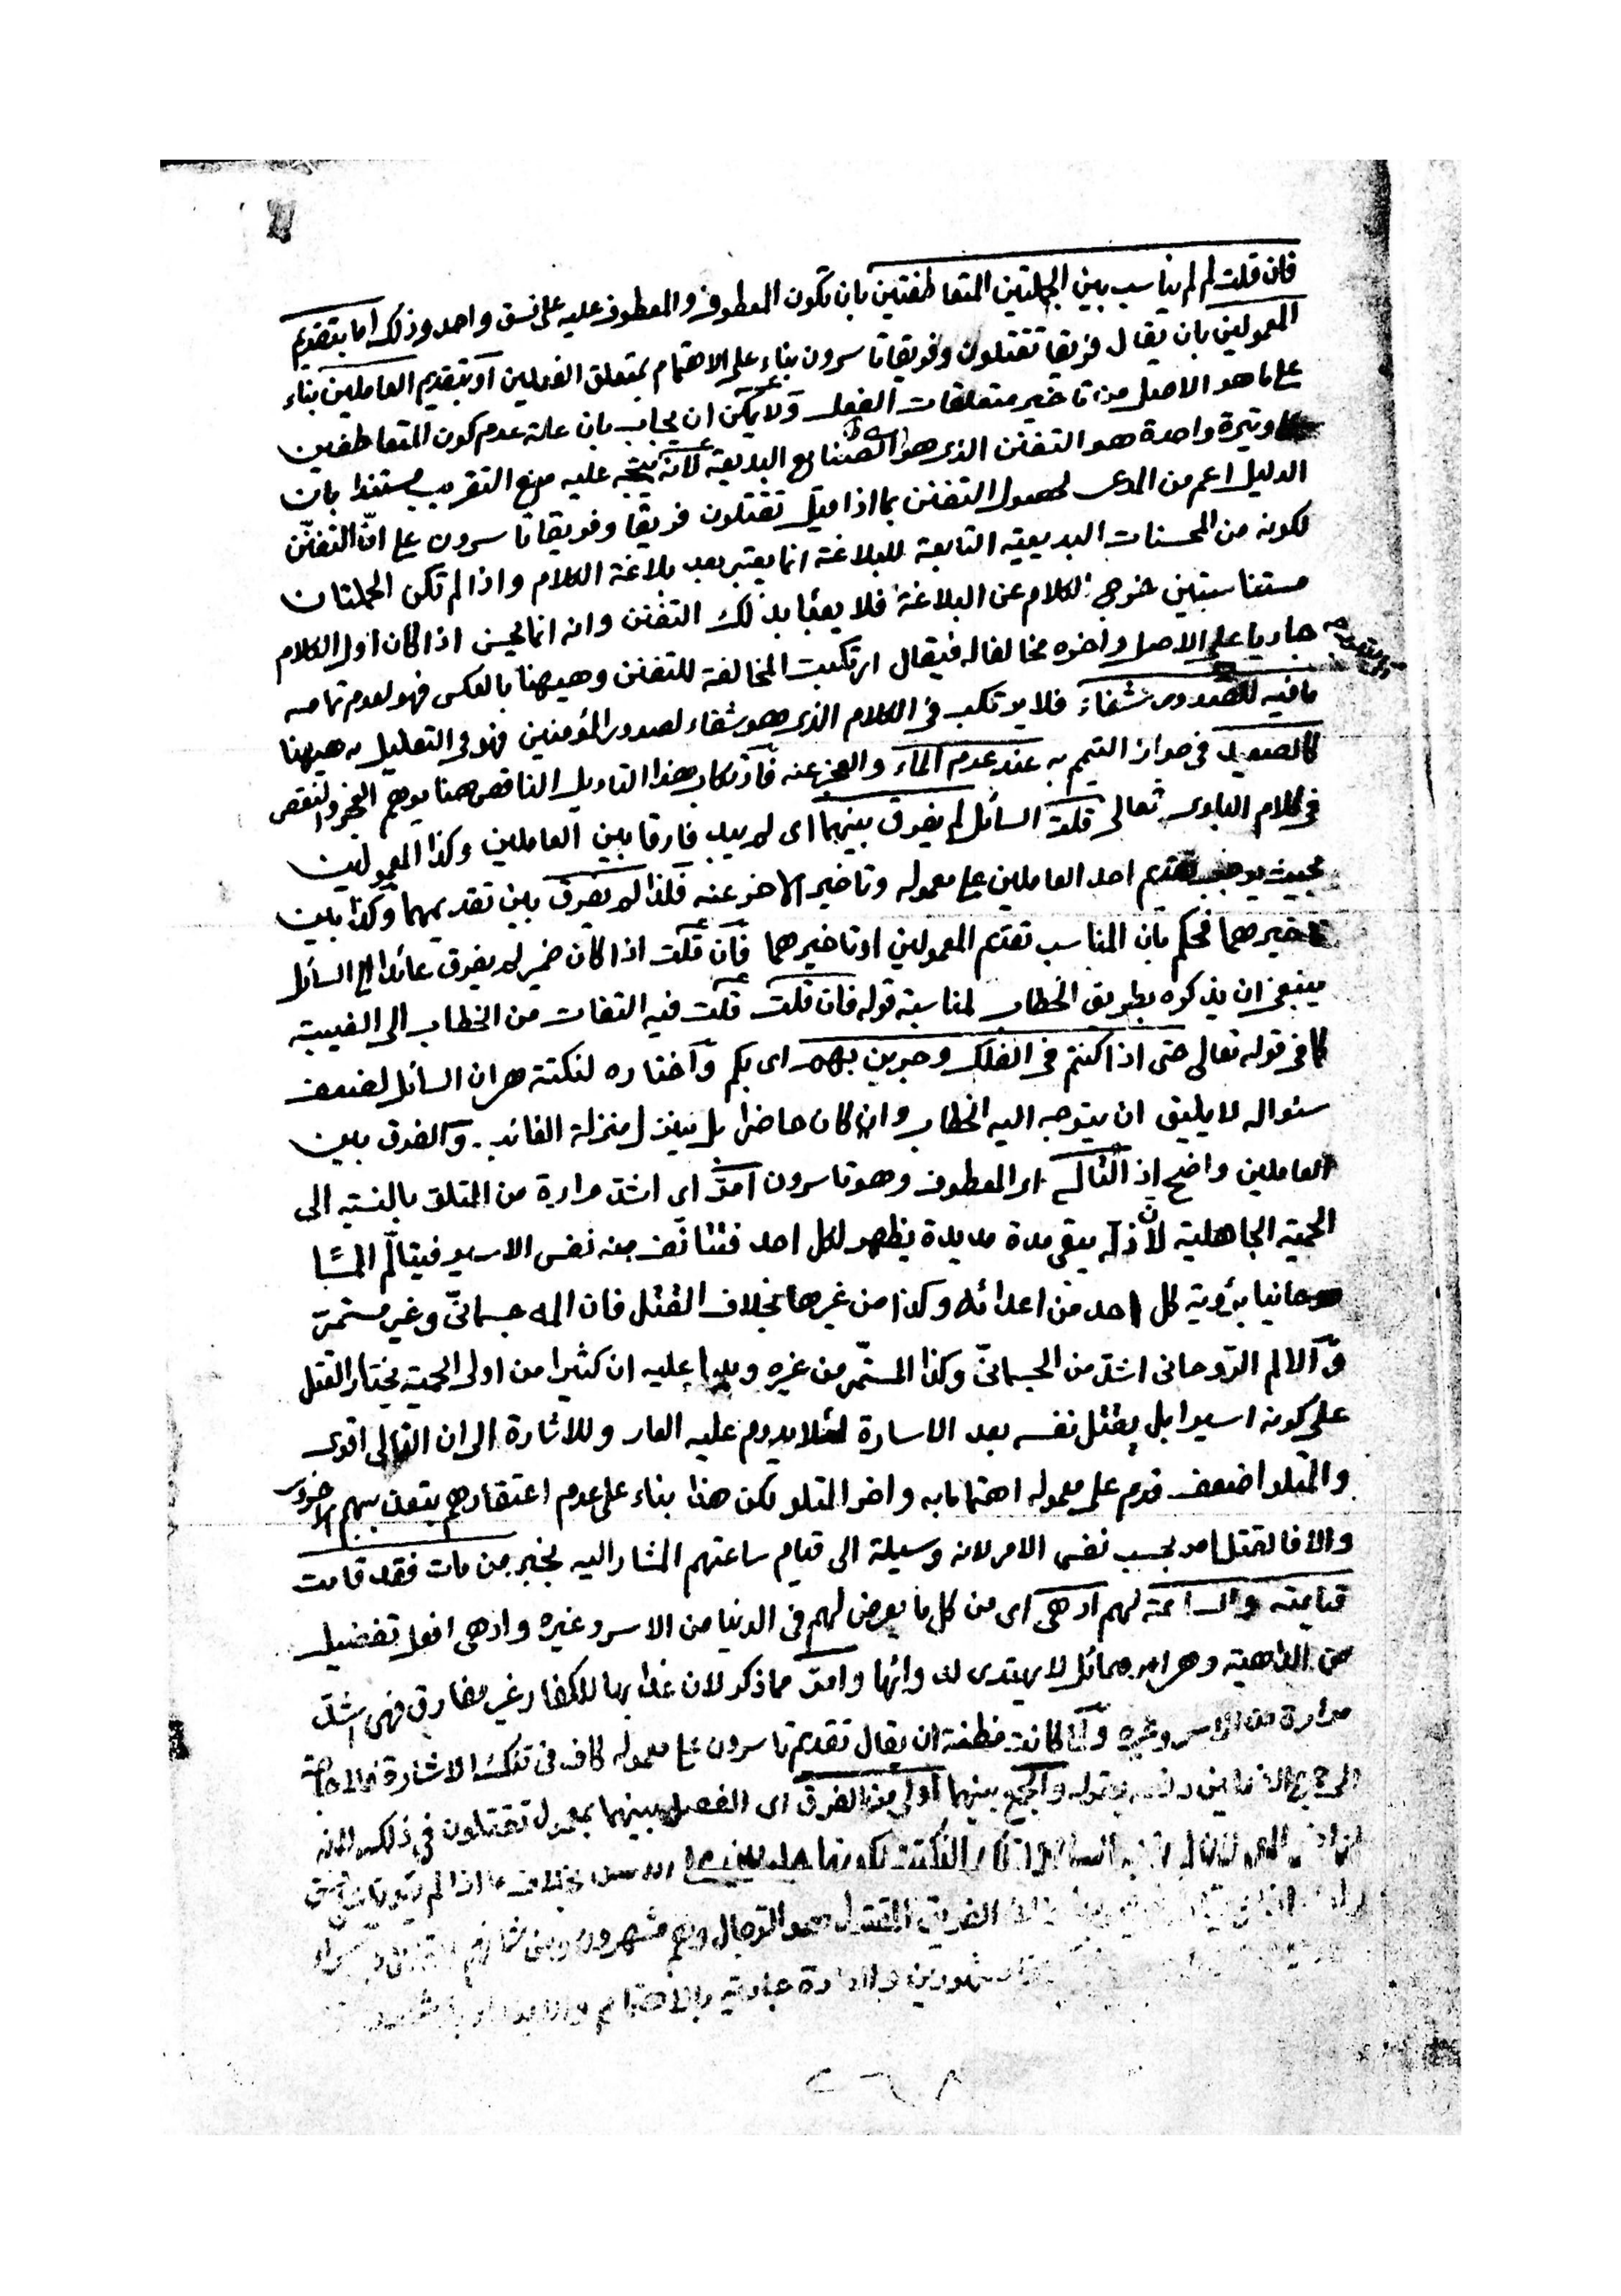 فان قلت لم لم يناسب بين الجملتين المتعاطفتين بان تكون المعطوف والمعطوف عليه على نسق واحد وذلك اما بتقديم
المعمولين بان يقال فريقا تقتلون وفريقا تاسرون بناء على الاهتمام بمتعلق الفعلين او بتقديم العاملين بناء
على ما هو الاصل من تاخير متعلقات الفعل ولا يمكن ان يجاب بان علة عدم كون المتعاطفين
وتيرة واحدة هو التفنن الذى هو الصنايع البديعية لانه يتجه عليه منع التقريب مستندا بان
الدليل اعم من المدعى لحصول التفنن بما اذا قيل تقتلون فريقا وفريقا تاسرون على انّ التفنّن
لكونه من المحسنات البديعية التابعة للبلاغة انما يعتبر بعد بلاغة الكلام واذا لم تكن الجملتان
متناسبتين خرج الكلام عن البلاغة فلا يعبأ بذلك التفنن وانه انما يحسن اذا كان اول الكلام
جاريا على الاصل واخره مخالفا له فيقال ارتكبت المخالفة للتفنن وهيهنا بالعكس فهو لعدم تمامه
ما فيه للصدور شفاء فلا يرتكب فى الكلام الذى هو شفاء لصدور المؤمنين فهو فى التعليل به هيهنا
كالصعيد فى جواز التيمم به عند عدم الماء والعجز عنه فارتكاب هذا التاويل الناقص هنا يوهم العجز والنقص
فى كلام البارى تعالى قلت السائل لم يفرق بينهما اى لم يبد فارقا بين العاملين وكذا المعمولين
بحيث يوجب تقديم احد العاملين على معموله وتاخير الاخر عنه فلذا لم يفرق بين تقديمهما وكذا بين
تاخيرهما فحكم بان المناسب تقديم المعمولين او تاخيرهما فان قلت اذا كان ضمير لم يفرق عائدا الى السائل
ينبغى ان يذكره بطريق الخطاب لمناسبة قوله فان قلت قلت فيه التفات من الخطاب الى الغيبة
كما فى قوله تعالى حتى اذا كنتم فى الفلك وجرين بهم اى بكم واختاره لنكتة هى ان السائل لضعف
سئواله لا يليق ان يتوجه اليه الخطاب وان كان حاضرا بل ينزل منزلة الغائب والفرق بين
العاملين واضح اذ التالى اى المعطوف وهو تاسرون امرّ اى اشد مرارة من المتلو بالنسبة الى
الحمية الجاهلية لان ذله يبقى مدة مديدة يظهر لكل احد فتتانّف منه نفس الاسير فيتالّم المًا
روحانيا برؤية كل احد من اعدائه وكذا من غيرها بخلاف القتل فان المه جسمانىّ وغير مستمرّ
والالم الرّوحانى اشد من الجسمانىّ وكذا المستمّر من غيره ويدل عليه ان كثيرا من اولى الحمية يختار القتل
على كونه اسيرا بل يقتل نفسه بعد الاسارة لئلا يدوم عليه العار وللاشارة الى ان التالى اقوى
والمتلو اضعف قدم على معموله اهتماما به واخر المتلو لكن هذا بناء على عدم اعتقادهم بتعذيبهم الاخروى
والا فالقتل امر بحسب نفس الامر لانه وسيلة الى قيام ساعتهم المشار اليه بخبر من مات فقد قامت
قيامته والساعة لهم ادهى اى من كل ما يعرض لهم فى الدنيا من الاسر وغيره وادهى افعل تفضيل
من الداهية وهى امر هائل لا يهتدى لدوائها وامرّ مما ذكر لان عذابها للكفار غير مفارق فهى اشد
مرارة من الاسر وغيره ولما كانت مظنة ان يقال تقديم تاسرون على معموله كاف فى تلك الاشارة فلا حاجة
الى جمع الفعلين دفعه بقوله والجمع بينهما اولى من الفرق اى الفصل بينهما بمعمول تقتلون فى ذلك لانه
النكتة لكونها بخلاف ما اذا لم
الفريق المقتول هو الرجال وهم مشهورون ومن شانهم
مشهورين بالاهتمام
٢٦٨